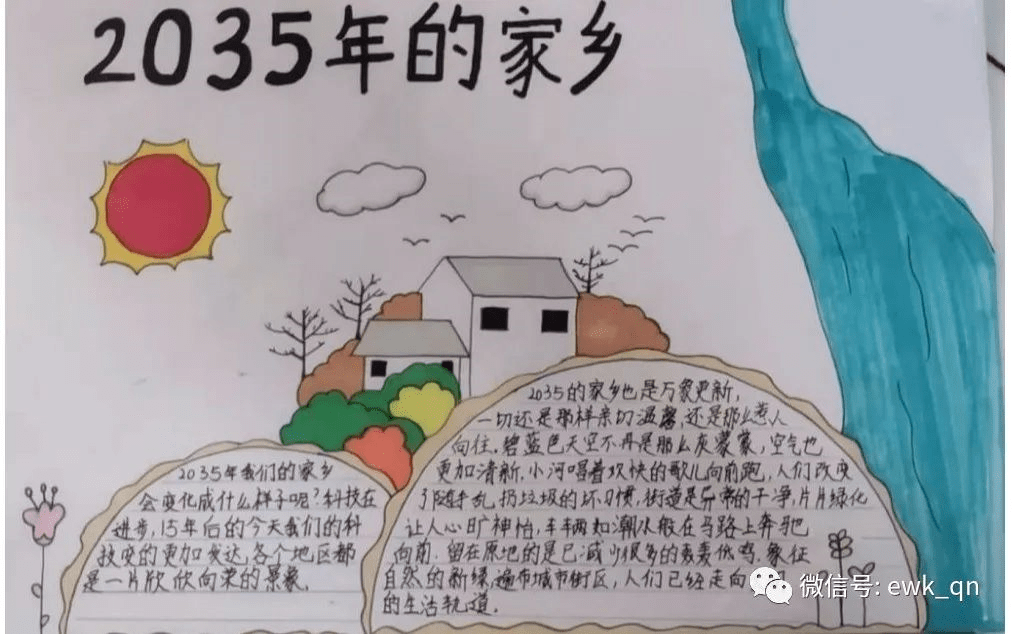 2035年的家乡
2035年我们的家乡
会变化成什么样子呢?科技在
进步,15年后的今天我们的科
技变的更加发达,各个地区都
是一片欣欣向荣的景象.
2035的家乡也是万象更新,
一切还是那样亲切温馨,还是那么惹人
向往.碧蓝色天空不再是那么灰蒙蒙,空气也
更加清新,小河唱着欢快的歌儿向前跑,人们改变
了随手乱扔垃圾的坏习惯,街道是异常的干净,片片绿化
让人心旷神怡,车辆如潮水般在马路上奔驰
向前.留在原地的是已减少很多的轰轰低鸣.象征
自然的新绿遍布城市街区,人们已经走向
的生活轨道.
微信号: ewk_qn